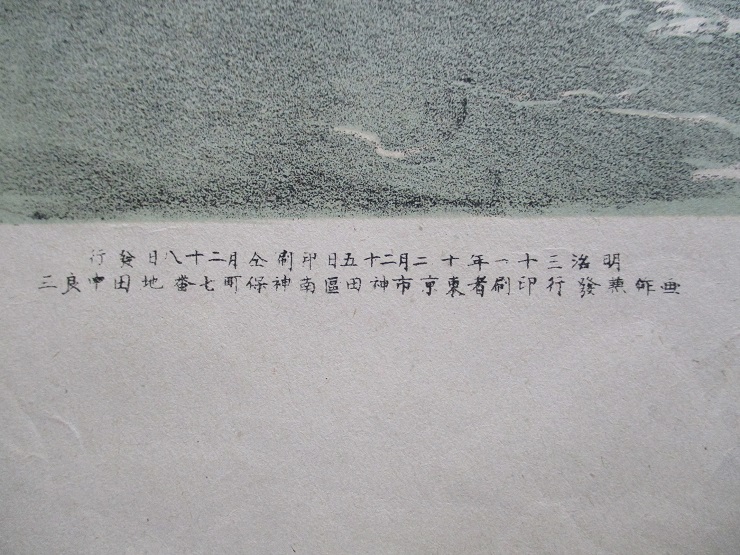 明治三十一年十二月二十五日印刷仝月二十八日發行
画作兼發行印刷者東京市神田區南神保町七番地田中良三